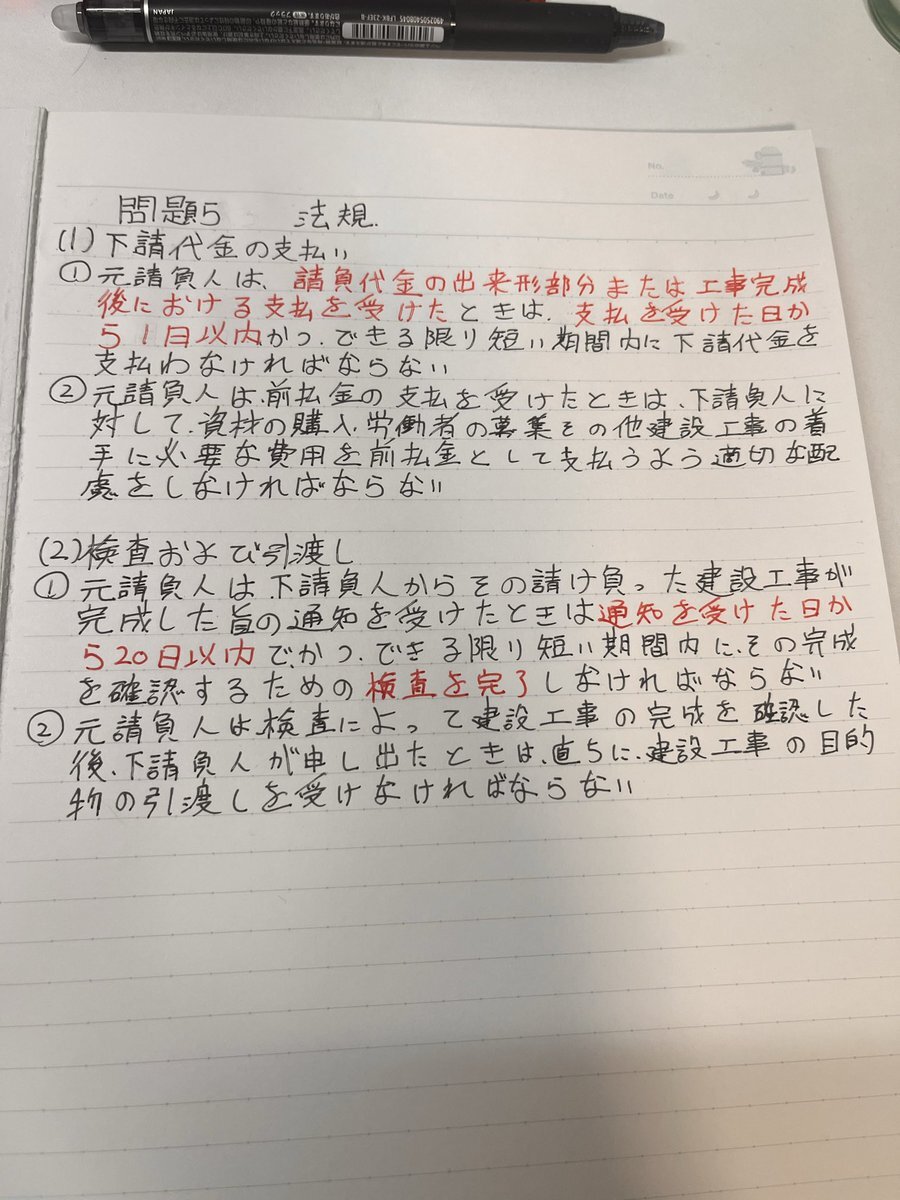 JAPAN
4902505408045 LFBK-23EF-B
No.
Date
問題5 法規.
(1)下請代金の支払い
①元請負人は、請負代金の出来形部分または工事完成
後における支払を受けたときは、支払を受けた日か
ら1日以内かつ、できる限り短い期間内に下請代金を
支払わなければならない
②元請負人は、前払金の支払を受けたときは、下請負人に
対して、資材の購入、労働者の募集その他建設工事の着
手に必要な費用を前払金として支払うよう適切な配
慮をしなければならない
(2)検査および引渡し
①元請負人は下請負人からその請け負った建設工事が
完成した旨の通知を受けたときは通知を受けた日か
ら20日以内で、かつ、できる限り短い期間内に、その完成
を確認するための検査を完了しなければならない
②元請負人は検査によって建設工事の完成を確認した
後、下請負人が申し出たときは、直ちに、建設工事の目的
物の引渡しを受けなければならない